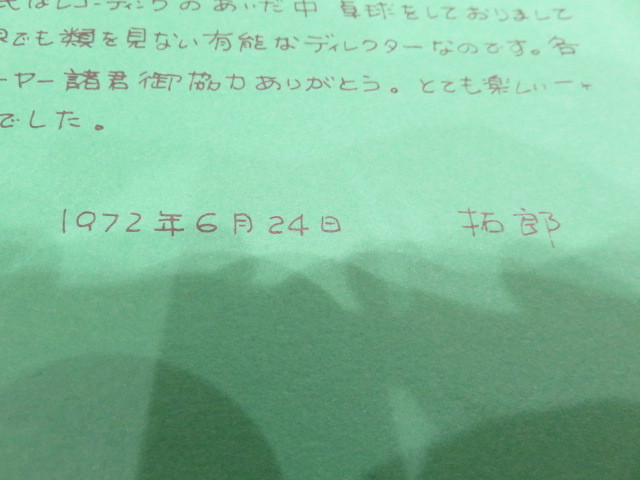 はレコーディングのあいだ中 卓球をしておりまして
でも類を見ない有能なディレクターなのです。各
ーヤー諸君御協力ありがとう。とても楽しい一ヶ
でした。
1972年6月24日 拓郎